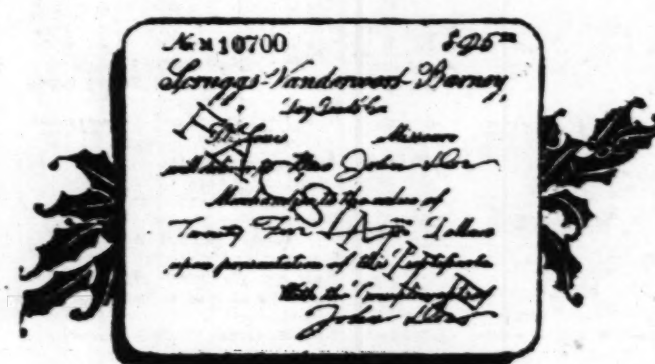 No. 10700 $25⁰⁰
Scruggs-Vandervoort-Barney
Dry Goods Co.
St. Louis Missouri
will deliver to John Doe
Merchandise to the value of
Twenty Five Dollars
upon presentation of this Certificate
With the Compliments of
John Doe
FACSIMILE